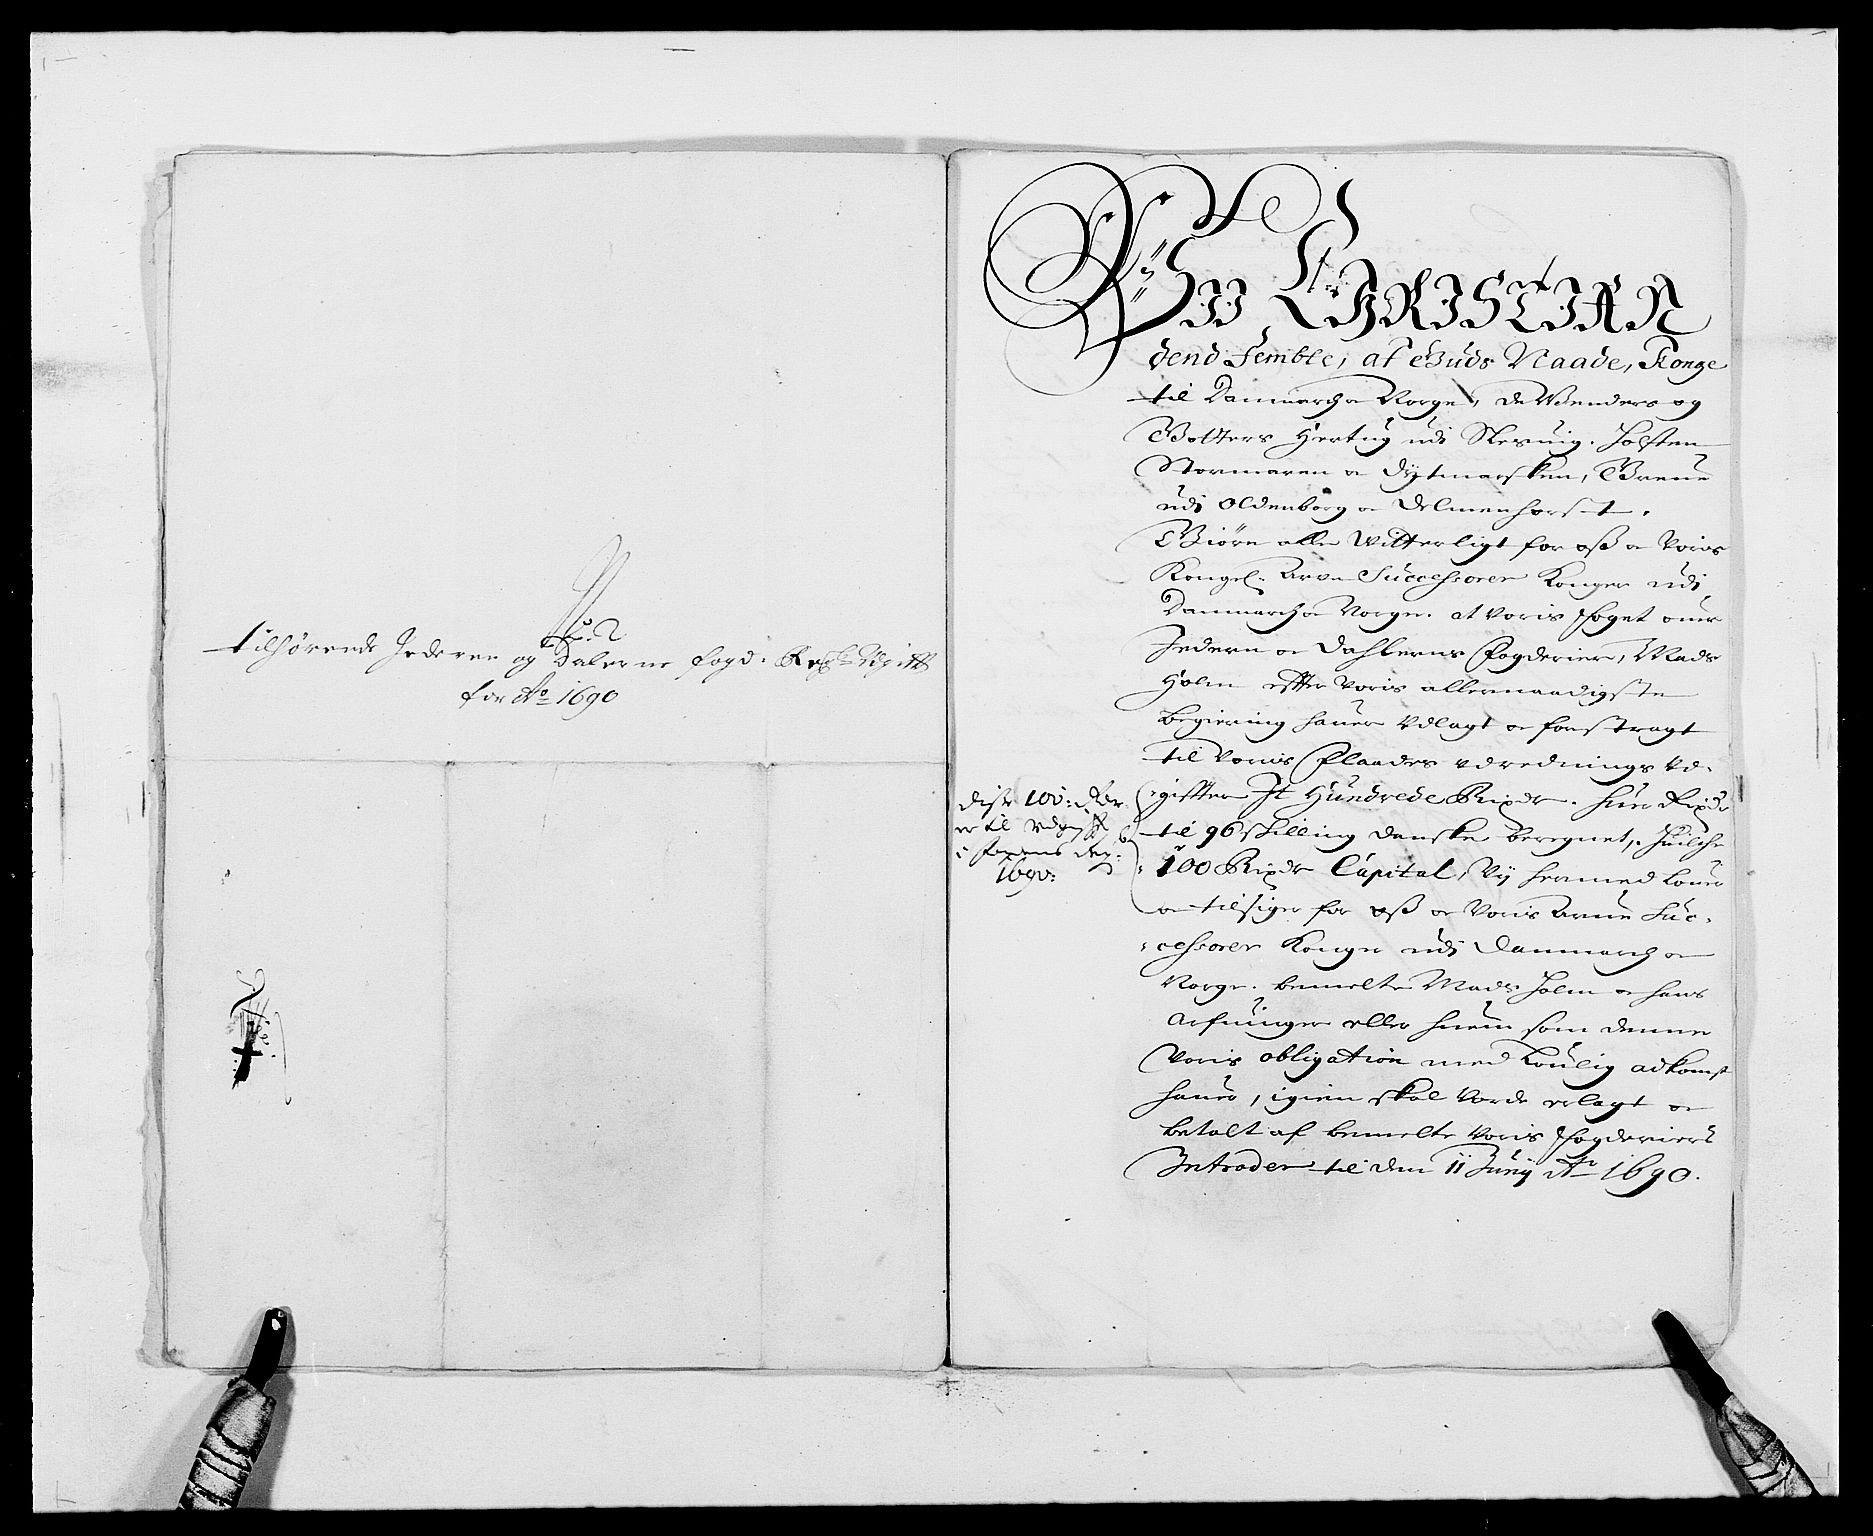 N: 2
tilhørende Jederen og Dalerne fogd: Regsk: Udgifft
for Ao 1690
Wii CHRISTIAN
dend Fembte, af Guds Naade, Konge
til Danmarch oc Norge, de Wenders og
Gotters Hertug udi Slesuig. Holsten
Stormaren oc Dytmersken, Greue
udi Oldenborg oc Delmenhorst.
Giøre alle Witterligt for oss oc Voris
Kongel. Arve Successorer Konger udi
Danmarch oc Norge. at Voris Foget ouer
Jedern oc Dahlerns Fogderier, Mads
Holm effter Voris allernaadigste
begiering hauer Vdlagt oc forstragt
til Voris Flaades Vdrednings Vd-
-giffter Jt Hundrede Rixdr. huer Rixdr
til 96 skilling danske beregnet, huilche
100 Rixdr Capital, Vij hermed louer
oc tilsiger for oss oc Voris Arue Suc-
-cessorer Konger udi Danmarch oc
Norge. bemelte Mads Holm oc hans
Arfuinger eller huem som denne
Voris obligation med Loulig adkomst
hauer, igien skal Vorde erlagt oc
betalt af bemelte Voris Fogderiers
Intrader til den 11 Junij Ao 1690.
disse 100: Rdr
er til Udgifft
i
1690: